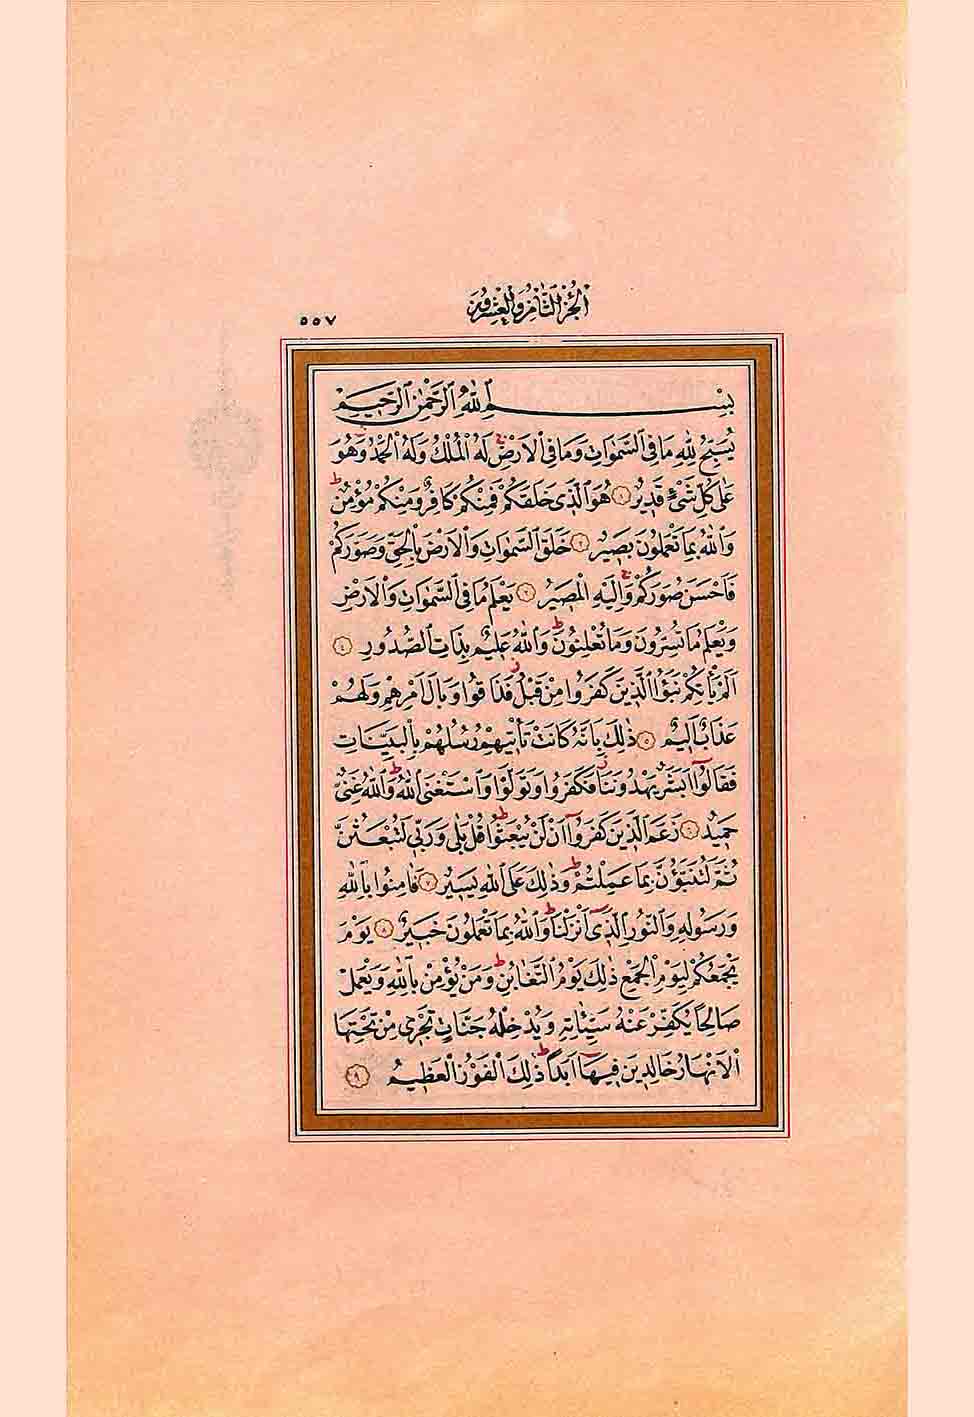 الجزء الثامن والعشرون
٥٥٧
بِسْمِ اللّٰهِ الرَّحْمٰنِ الرَّحِيمِ
يُسَبِّحُ لِلّٰهِ مَا فِي السَّمٰوَاتِ وَمَا فِي الْاَرْضِۚ لَهُ الْمُلْكُ وَلَهُ الْحَمْدُ وَهُوَ
عَلٰى كُلِّ شَيْءٍ قَدِيرٌ ﴿١﴾ هُوَ الَّذِي خَلَقَكُمْ فَمِنْكُمْ كَافِرٌ وَمِنْكُمْ مُؤْمِنٌۜ
وَاللّٰهُ بِمَا تَعْمَلُونَ بَصِيرٌ ﴿٢﴾ خَلَقَ السَّمٰوَاتِ وَالْاَرْضَ بِالْحَقِّ وَصَوَّرَكُمْ
فَاَحْسَنَ صُوَرَكُمْۚ وَاِلَيْهِ الْمَصِيرُ ﴿٣﴾ يَعْلَمُ مَا فِي السَّمٰوَاتِ وَالْاَرْضِ
وَيَعْلَمُ مَا تُسِرُّونَ وَمَا تُعْلِنُونَۜ وَاللّٰهُ عَلِيمٌ بِذَاتِ الصُّدُورِ ﴿٤﴾
اَلَمْ يَأْتِكُمْ نَبَؤُا الَّذِينَ كَفَرُوا مِنْ قَبْلُۘ فَذَاقُوا وَبَالَ اَمْرِهِمْ وَلَهُمْ
عَذَابٌ اَلِيمٌ ﴿٥﴾ ذٰلِكَ بِاَنَّهُ كَانَتْ تَأْتِيهِمْ رُسُلُهُمْ بِالْبَيِّنَاتِ
فَقَالُٓوا اَبَشَرٌ يَهْدُونَنَاۘ فَكَفَرُوا وَتَوَلَّوْا وَاسْتَغْنَى اللّٰهُۜ وَاللّٰهُ غَنِيٌّ
حَمِيدٌ ﴿٦﴾ زَعَمَ الَّذِينَ كَفَرُٓوا اَنْ لَنْ يُبْعَثُواۜ قُلْ بَلٰى وَرَبِّي لَتُبْعَثُنَّ
ثُمَّ لَتُنَبَّؤُنَّ بِمَا عَمِلْتُمْۜ وَذٰلِكَ عَلَى اللّٰهِ يَسِيرٌ ﴿٧﴾ فَاٰمِنُوا بِاللّٰهِ
وَرَسُولِهِ وَالنُّورِ الَّذِٓي اَنْزَلْنَاۜ وَاللّٰهُ بِمَا تَعْمَلُونَ خَبِيرٌ ﴿٨﴾ يَوْمَ
يَجْمَعُكُمْ لِيَوْمِ الْجَمْعِ ذٰلِكَ يَوْمُ التَّغَابُنِۜ وَمَنْ يُؤْمِنْ بِاللّٰهِ وَيَعْمَلْ
صَالِحًا يُكَفِّرْ عَنْهُ سَيِّـَٔاتِهِ وَيُدْخِلْهُ جَنَّاتٍ تَجْرِي مِنْ تَحْتِهَا
الْاَنْهَارُ خَالِدِينَ فِيهَٓا اَبَدًاۜ ذٰلِكَ الْفَوْزُ الْعَظِيمُ ﴿٩﴾